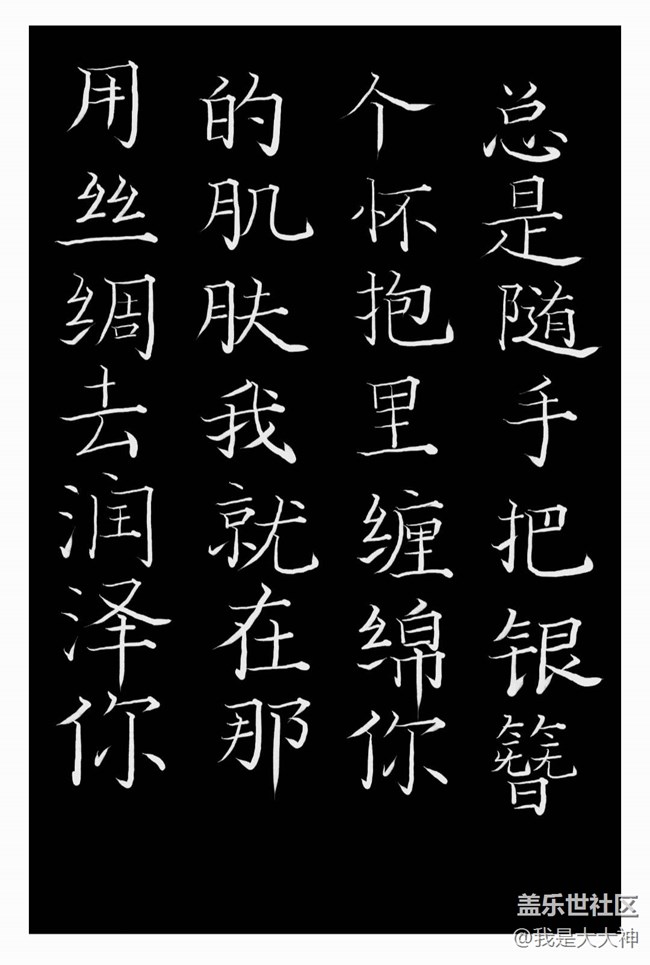 用丝绸去润泽你
的肌肤我就在那
个怀抱里缠绵你
总是随手把银簪
盖乐世社区
@我是大大神